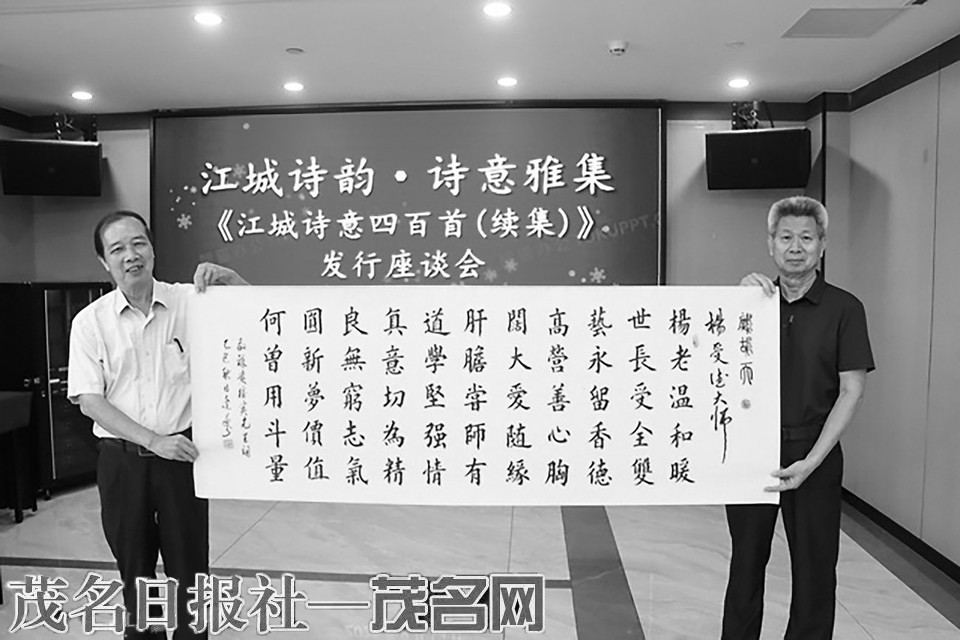 江城诗韵·诗意雅集
《江城诗意四百首(续集)》
发行座谈会
大师
楊老温和暖
世長受全雙
藝永留香德
高營善心胸
闊大愛随緣
肝膽嘗師有
道學堅强情
真意切為精
良無窮志氣
圓新夢價值
何曾用斗量
茂名日报社—茂名网